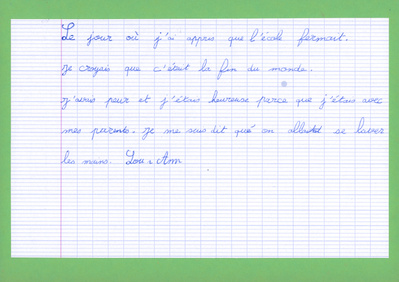 Le jour où j'ai appris que l'école fermait.
Je croyais que c'était la fin du monde.
J'avais peur et j'étais heureuse parce que j'étais avec
mes parents. Je me suis dit que on allait se laver
les mains. Lou-Ann